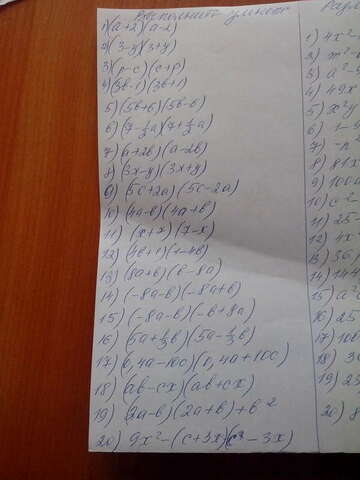 Выполнит умнож
1) (a+2)(a-2)
2) (3-y)(3+y)
3) (p-c)(c+p)
4) (3b-1)(3b+1)
5) (5b+6)(5b-6)
6) (7-1/2a)(7+1/2a)
7) (a+2b)(a-2b)
8) (3x-y)(3x+y)
9) (5c+2a)(5c-2a)
10) (4a-b)(4a+b)
11) (x+7)(7-x)
12) (4b+1)(1-4b)
13) (8a+b)(b-8a)
14) (-8a-b)(-8a+b)
15) (-8a-b)(-b+8a)
16) (5a+1/3b)(5a-1/3b)
17) (0,4a-10c)(0,4a+10c)
18) (ab-cx)(ab+cx)
19) (2a-b)(2a+b)+b²
20) 9x²-(c+3x)(c-3x)
Разл
1) 4x²
2) m²
3) a²
4) 49x
5) x²y
6) 1-
7) -n
8) 81x
9) 100a
10) c²-
11) 25
12) 4x
13) 36
14) 144
15) a²
16) 25
17) 100
18) 36
19) 25
20) 8